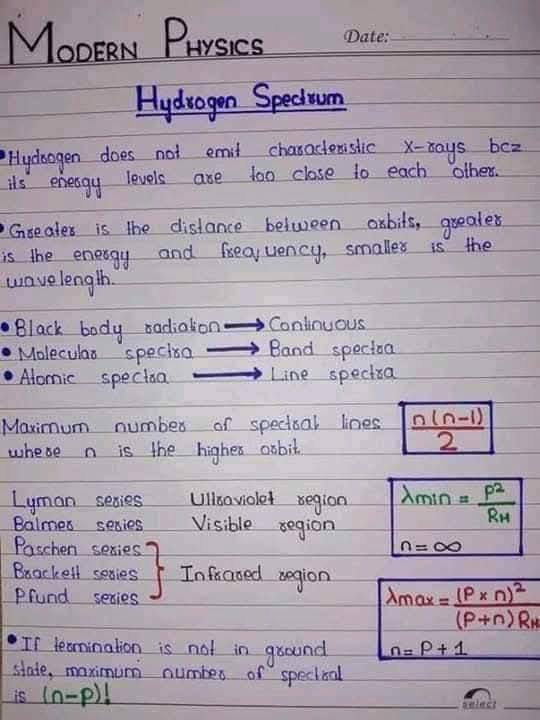 MODERN PHYSICS
Date:
Hydrogen Spectrum
• Hydrogen does not emit characteristic X-rays bcz
its energy levels are too close to each other.
• Greater is the distance between orbits, greater
is the energy and frequency, smaller is the
wavelength.
• Black body radiation → Continuous
• Molecular spectra → Band spectra
• Atomic spectra → Line spectra
Maximum number of spectral lines
where n is the higher orbit
n(n-1)/2
Lyman series Ultraviolet region
Balmer series Visible region
Paschen series
Brackett series } Infrared region
Pfund series
λmin = P²/RH
n = ∞
λmax = (P x n)²/(P+n) RH
n = P + 1
• If termination is not in ground
state, maximum number of spectral
is (n-p)!
select